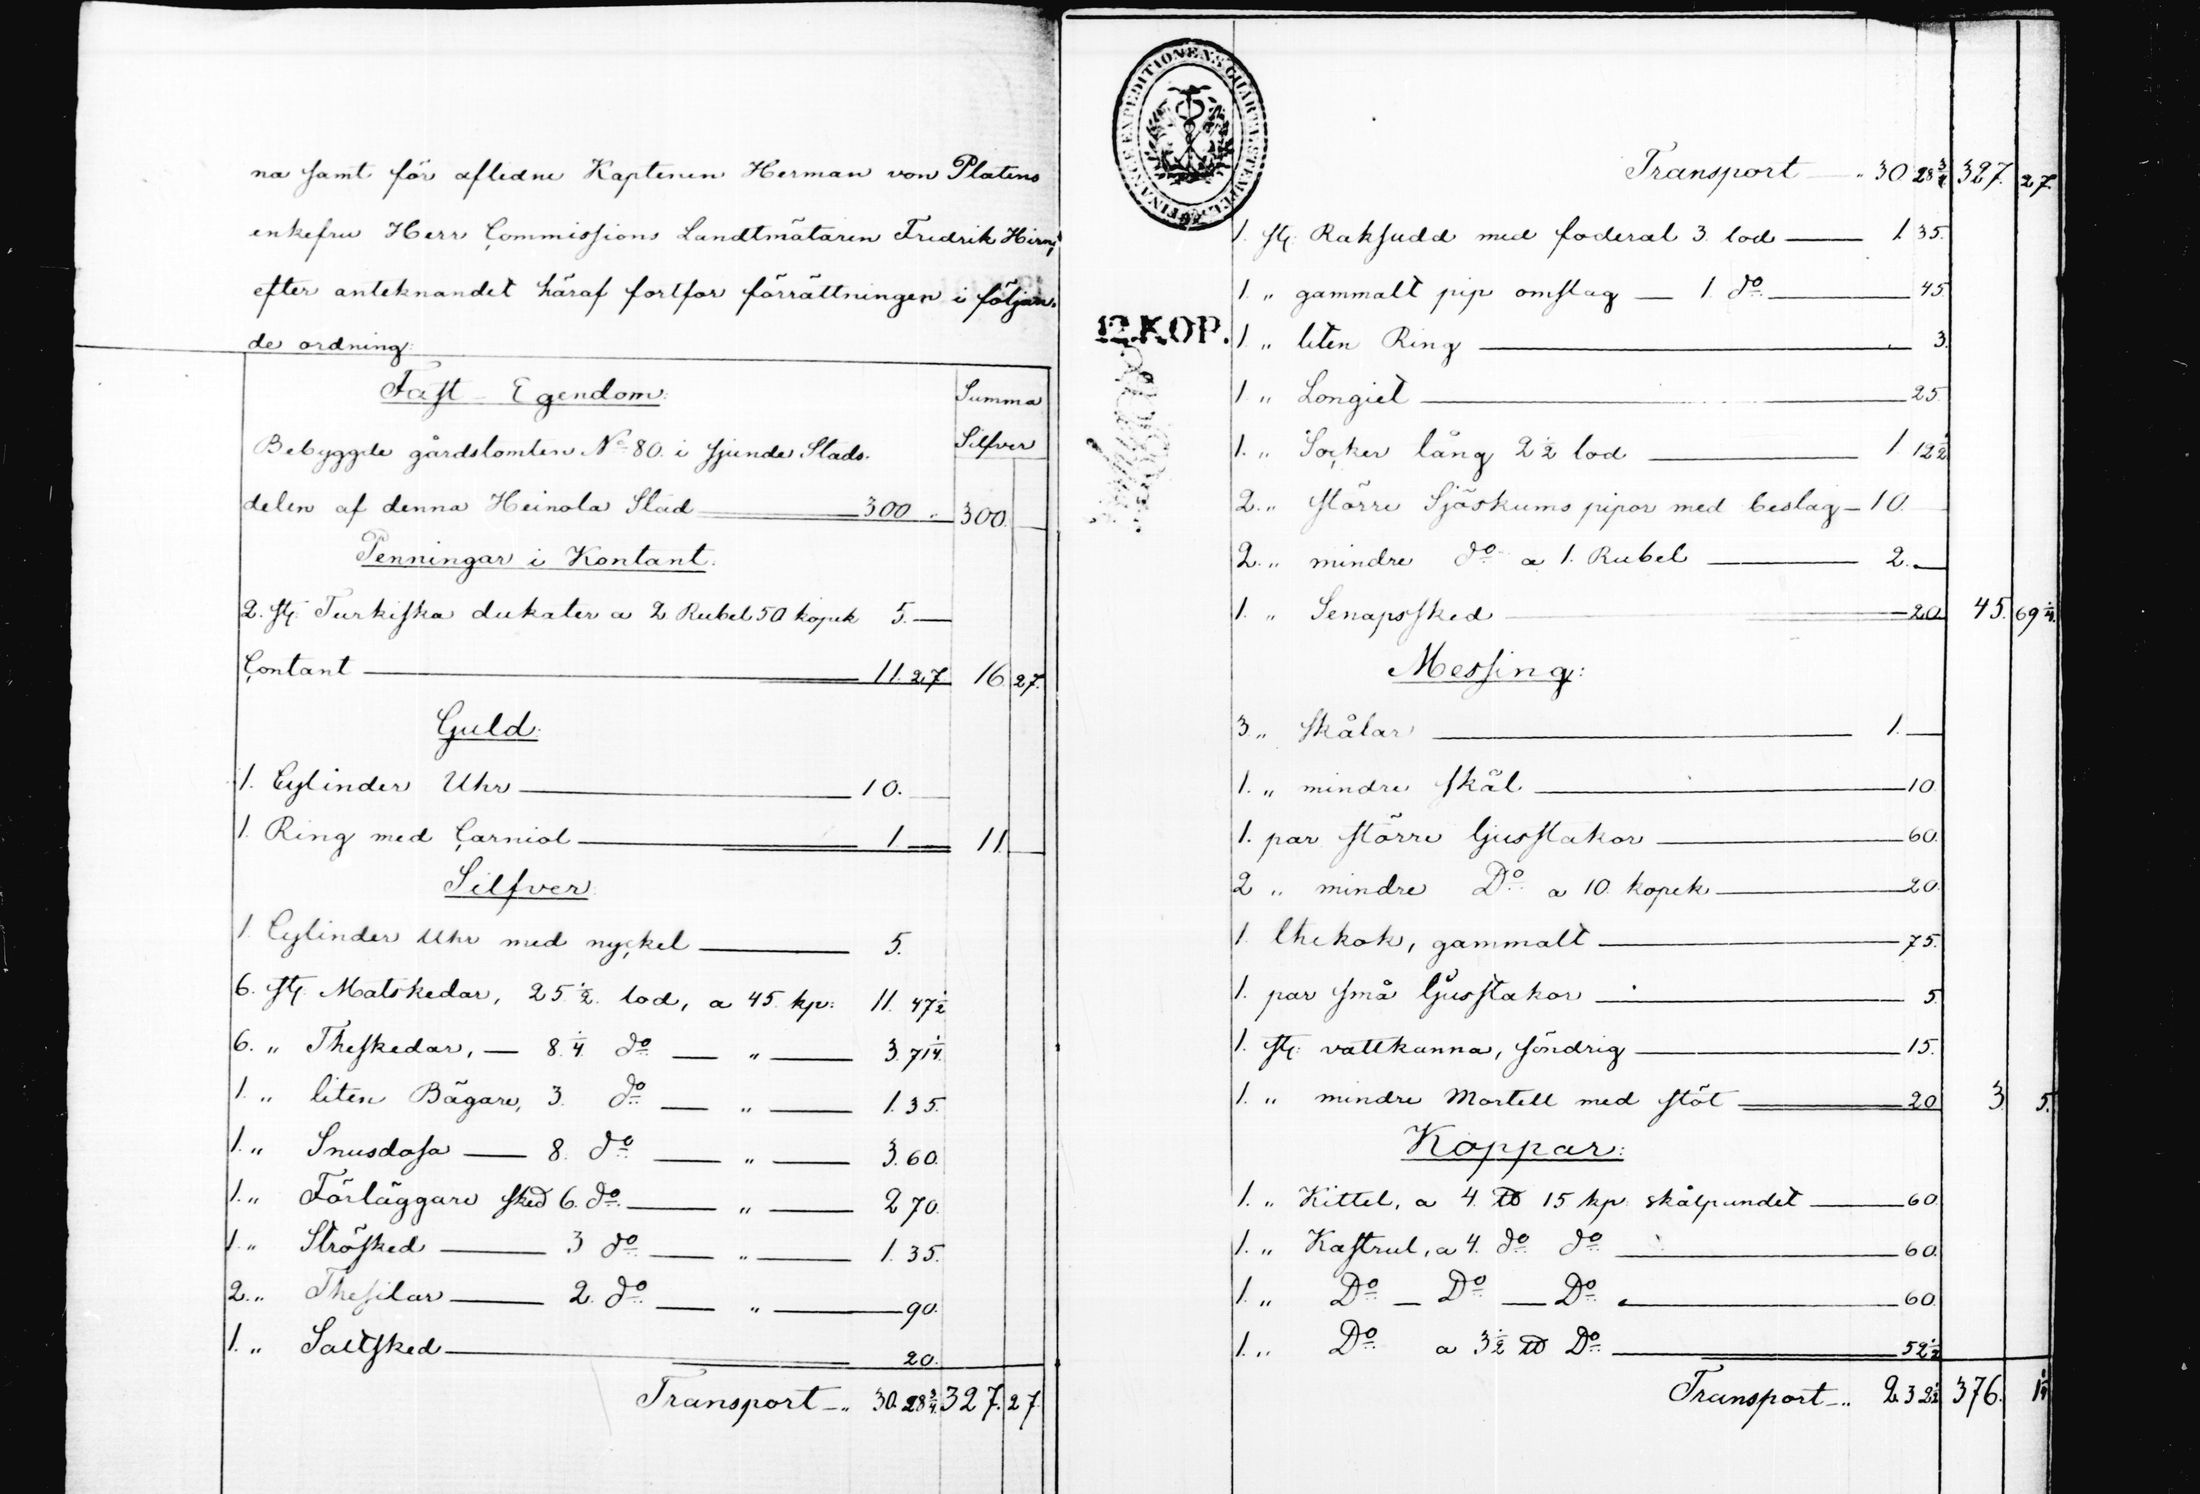 na samt för aflidne Kaptenen Herman von Platens
enkefru Herr Commissions Landtmätaren Fredrik Hirn;
efter anteknandet häraf fortfor förrättningen i följan-
de ordning:
Fast Egendom: Summa
Bebyggde gårdstomten No 80. i sjunde Stads- Silfver
delen af denna Heinola Stad 300 " 300. —
Penningar i Kontant.
2. st. Turkiska dukater a 2 Rubel 50 kopek 5. —
Contant 11. 27 16 27.
Guld:
1. Cylinder Uhr 10. —
1. Ring med Carniol 1. — 11. —
Silfver:
1. Cylinder Uhr med nyckel 5.
6. st. Matskedar, 25 1/2 lod, a 45 kp: 11. 47 1/2
6. " Theskedar, — 8 1/4 do — " — 3. 71 1/4
1. " liten Bägare, 3. do — " — 1. 35.
1. " Snusdosa — 8. do — " — 3. 60.
1. " Förläggare sked 6. do — " — 2 70.
1. " Strösked — 3 do — " — 1. 35.
2. " Thesilar — 2. do — " — 90.
1. " Saltsked — 20.
Transport — " 30. 28 3/4 327. 27.
FINANCE EXPEDITIONENS CHARTÆ STEMPEL
12. KOP.
Transport — " 30 28 3/4 327. 27.
1. st. Raksudd med foderal 3. lod — 1. 35.
1. " gammalt pip omslag — 1. do — 45
1. " liten Ring — 3.
1. " Longiet — 25
1. " Socker tång 2 1/2 lod — 1 12 1/2
2. " större Sjöskums pipor med beslag — 10. —
2. " mindre do a 1. Rubel — 2. —
1. " Senapssked — 20. 45. 69 1/4.
Messing:
3. " skålar — 1. —
1. " mindre skål — 10
1. par större ljusstakor — 60.
2 " mindre Do a 10. kopek — 20.
1. thekok, gammalt — 75.
1. par små ljusstakor — 5
1. st. vattkanna, söndrig — 15.
1. " mindre Mortell med stöt — 20 3. 5.
Koppar:
1. " Kittel, a 4. ℔ 15 kp skålpundet — 60.
1. " Kastrul, a 4. do do — 60.
1. " Do — Do — Do — 60.
1. " Do a 3 1/2 ℔ Do — 52 1/2
Transport — " 2. 32 1/2 376. 1 1/4